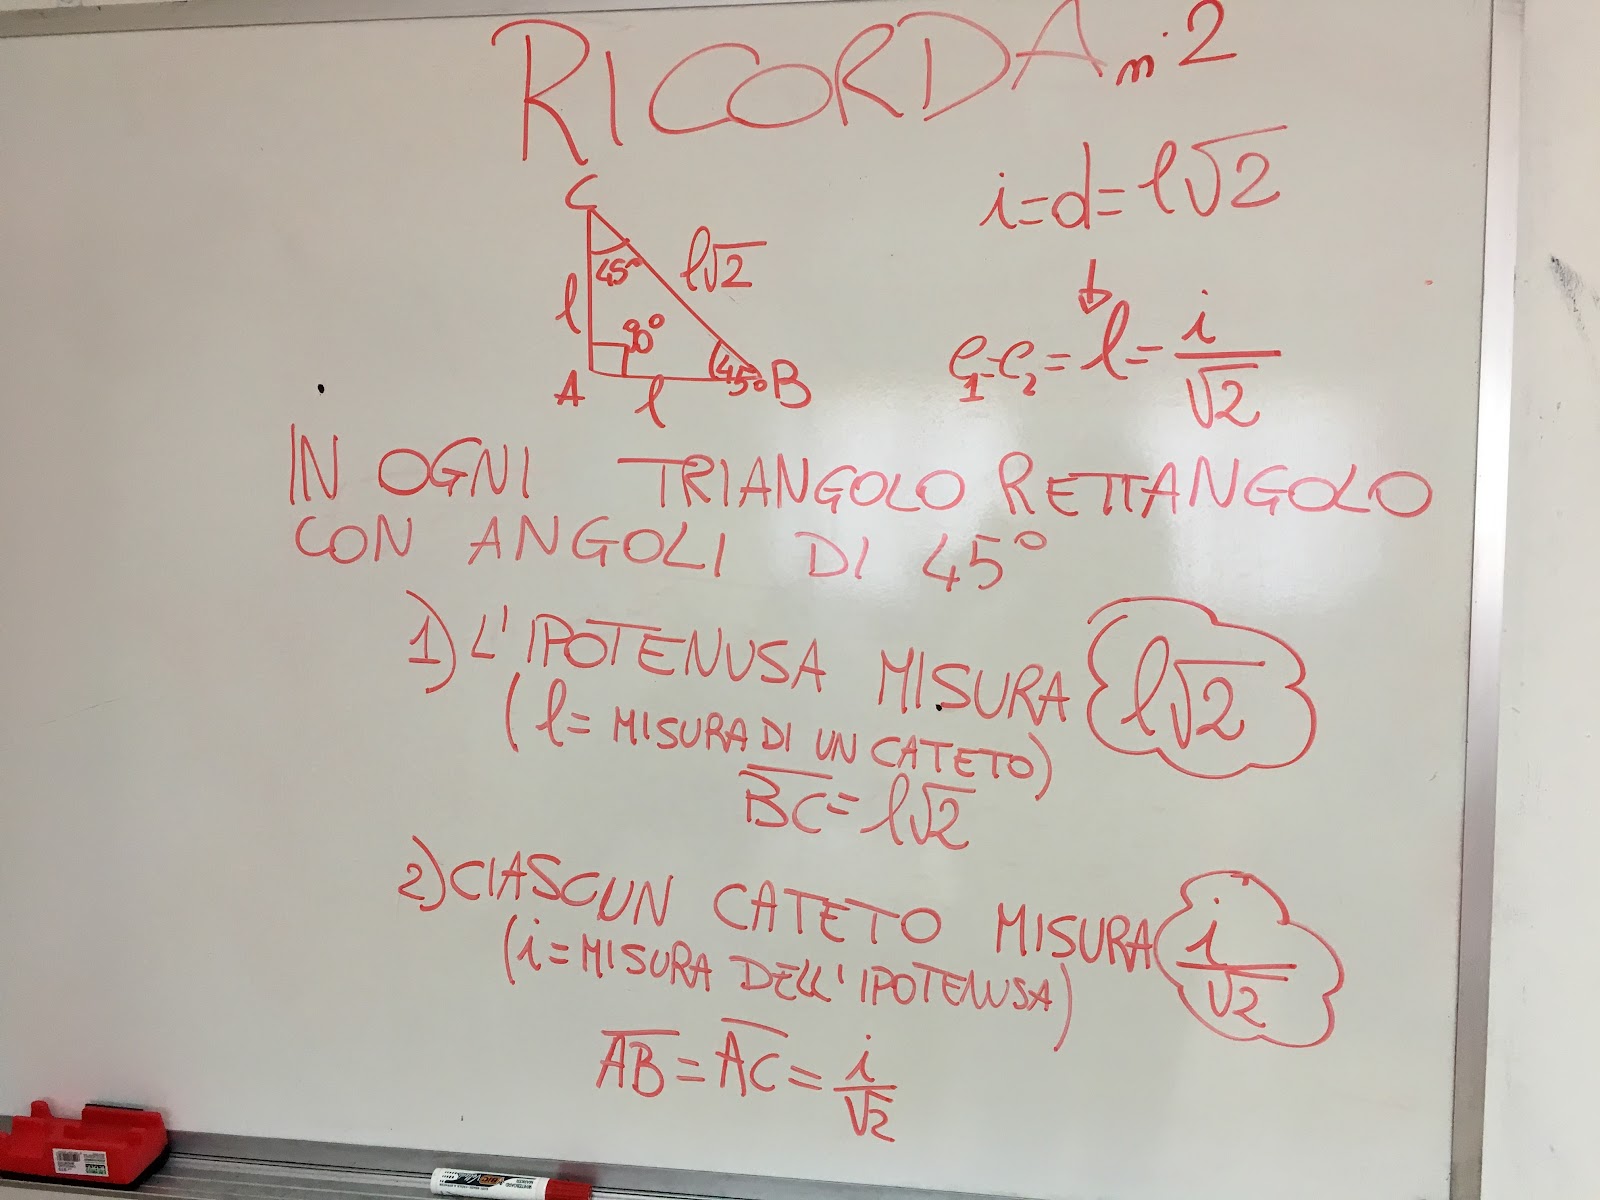 RICORDA n°2
C
45°
l
l√2
90°
A
l
45°
B
i=d=l√2
↓
C₁=C₂=l=i/√2
IN OGNI TRIANGOLO RETTANGOLO
CON ANGOLI DI 45°
1) L'IPOTENUSA MISURA l√2
(l= MISURA DI UN CATETO)
B̅C̅=l√2
2) CIASCUN CATETO MISURA i/√2
(i= MISURA DELL'IPOTENUSA)
A̅B̅=A̅C̅=i/√2
BIC